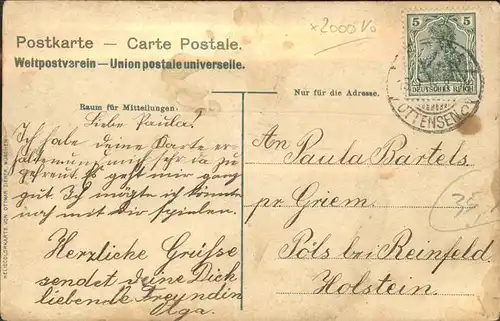 x2000 Vo
Postkarte — Carte Postale.
Weltpostverein — Union postale universelle.
5 5
DEUTSCHES REICH
OTTENSEN
Nur für die Adresse.
Raum für Mitteilungen.
Liebe Paula!
Ich habe deine Karte er-
halten und mich sehr da zu
gefreut. Es geht mir ganz
gut. Ich mögte ich könnte
noch mit dir spielen.
Herzliche Grüsse
sendet deine Dich
liebende Freundin
Olga.
An
Paula Bartels
pr Griem
35
Pöls bei Reinfeld
Holstein.